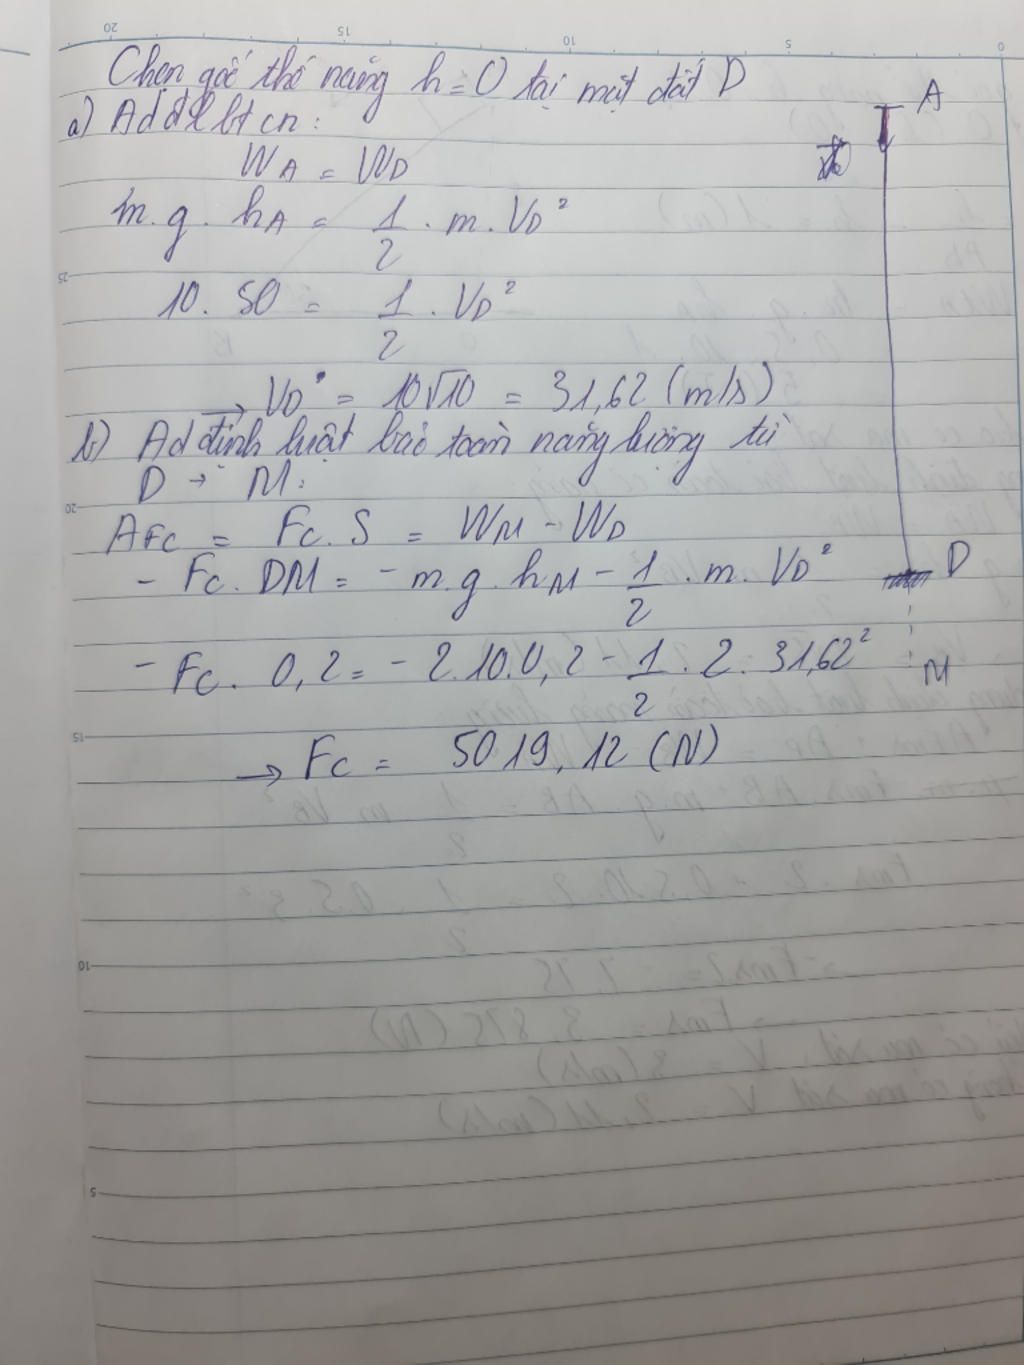 Chọn gốc thế năng h = 0 tại mặt đất D
a) Ad đl bt cn :
A
W_A = W_D
m. g. h_A = 1/2 . m. V_D²
10. 50 = 1/2 . V_D²
→ V_D = 10√10 = 31,62 (m/s)
b) Ad định luật bảo toàn năng lượng từ
D → M:
A_Fc = Fc. S = W_M - W_D
- Fc. DM = - m. g. h_M - 1/2 . m. V_D²
D
- Fc. 0,2 = - 2.10.0,2 - 1/2 . 2. 31,62²
M
→ Fc = 5019,12 (N)